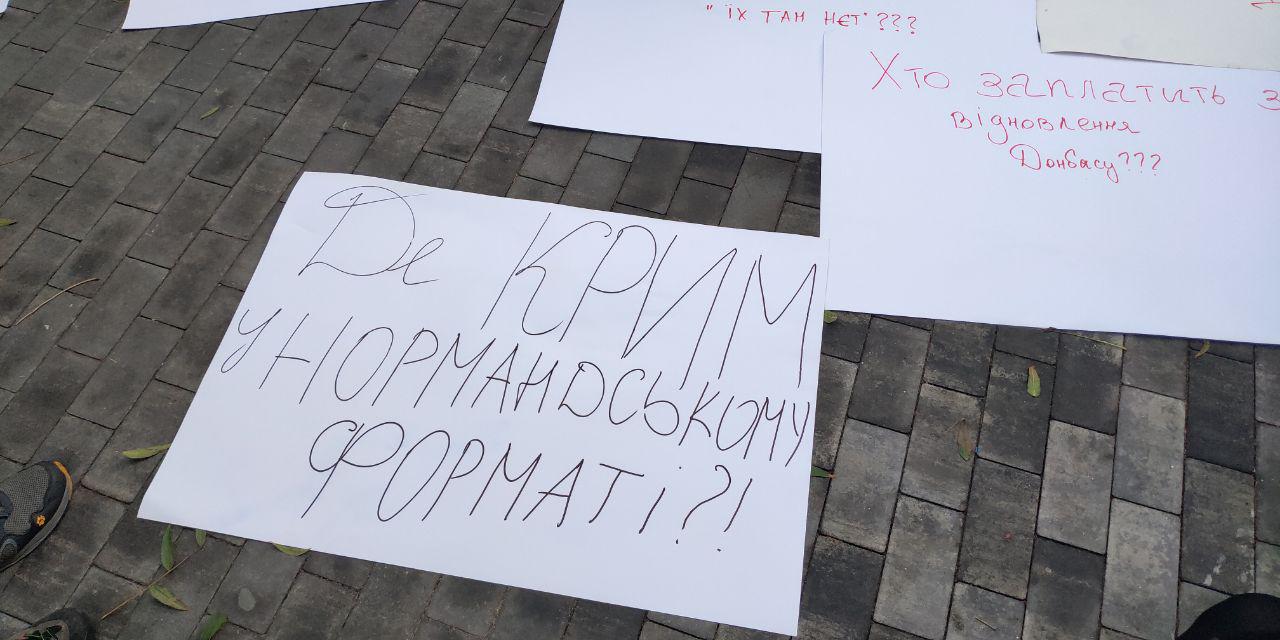 "ЇХ ТАМ НЄТ"???
Хто заплатить
відновлення
Донбасу???
Де КРИМ
у НОРМАНДСЬКОМУ
ФОРМАТі?!